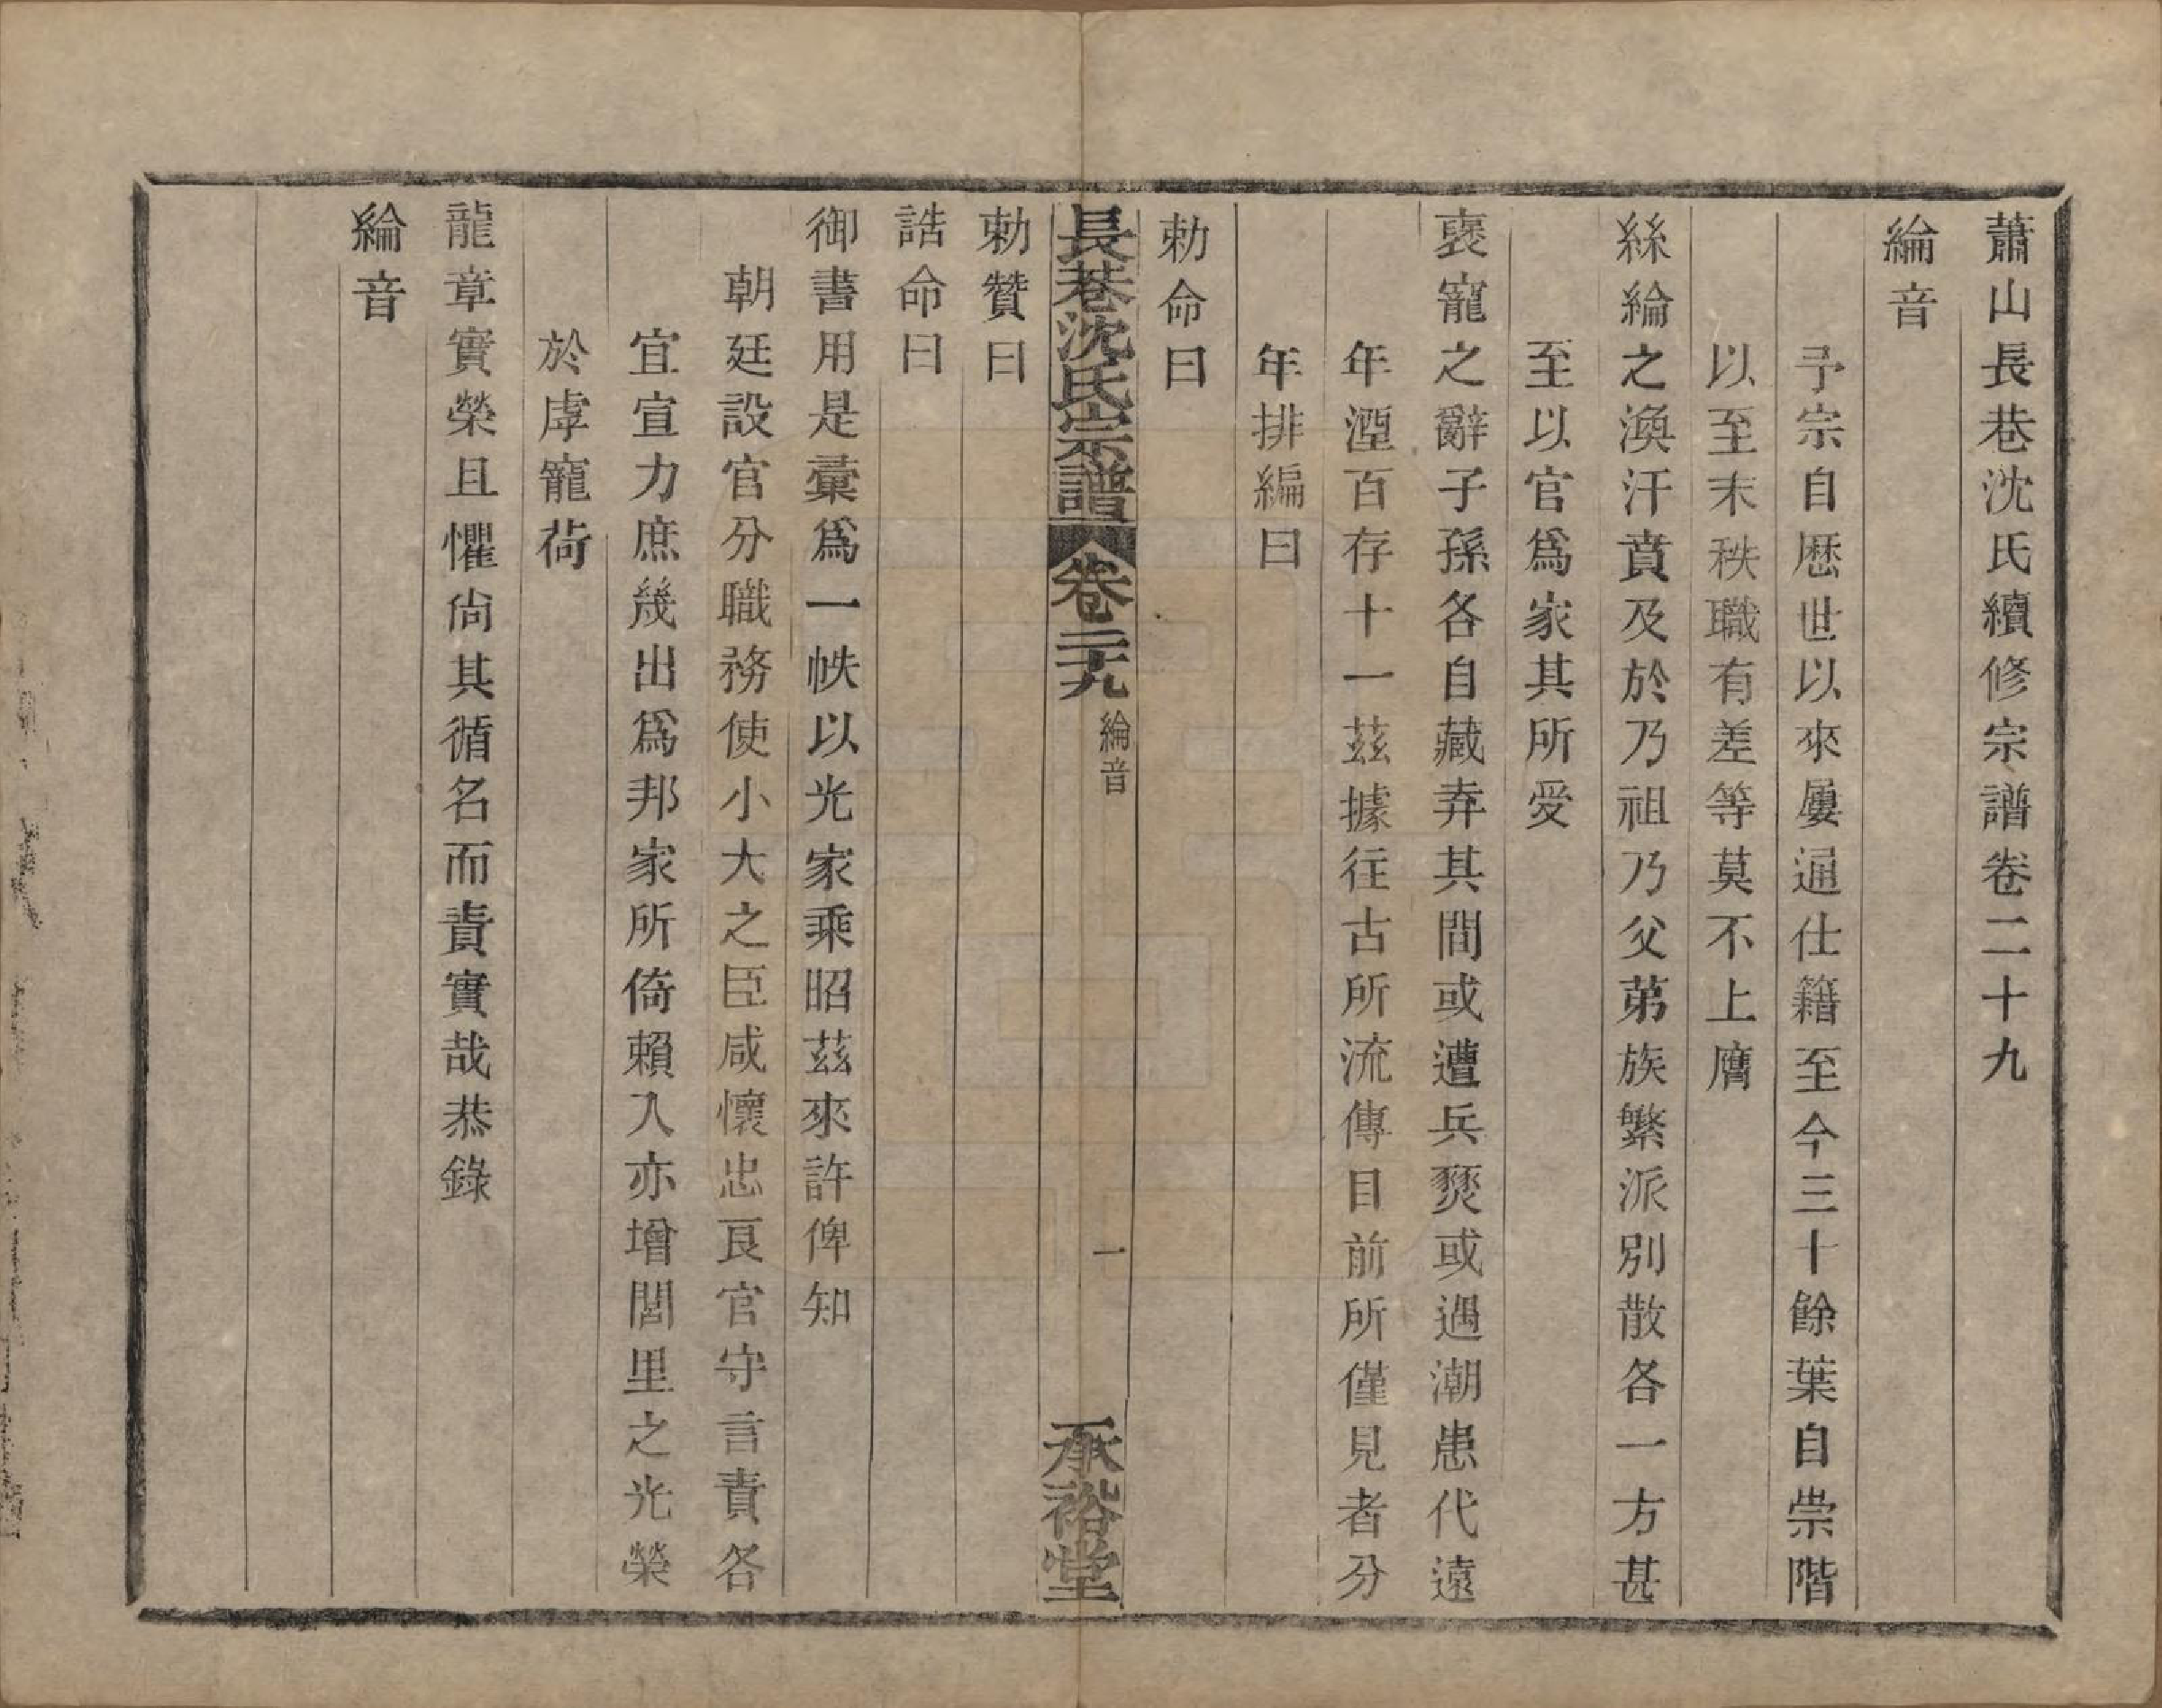 蕭山長巷沈氏續修宗譜卷二十九
綸音
予宗自歷世以來屢通仕籍至今三十餘葉自崇階
以至末秩職有差等莫不上膺
絲綸之渙汗賁及於乃祖乃父第族繁派別散各一方甚
至以官爲家其所受
襃寵之辭子孫各自藏弆其間或遭兵燹或遇潮患代遠
年湮百存十一茲據往古所流傳目前所僅見者分
年排編曰
勅命曰
長巷沈氏宗譜 卷二十九 綸音 一 承裕堂
勅贊曰
誥命曰
御書用是彙爲一帙以光家乘昭茲來許俾知
朝廷設官分職務使小大之臣咸懷忠良官守言責各
宜宣力庶幾出爲邦家所倚賴入亦增閭里之光榮
於虖寵荷
龍章實榮且懼尙其循名而責實哉恭錄
綸音